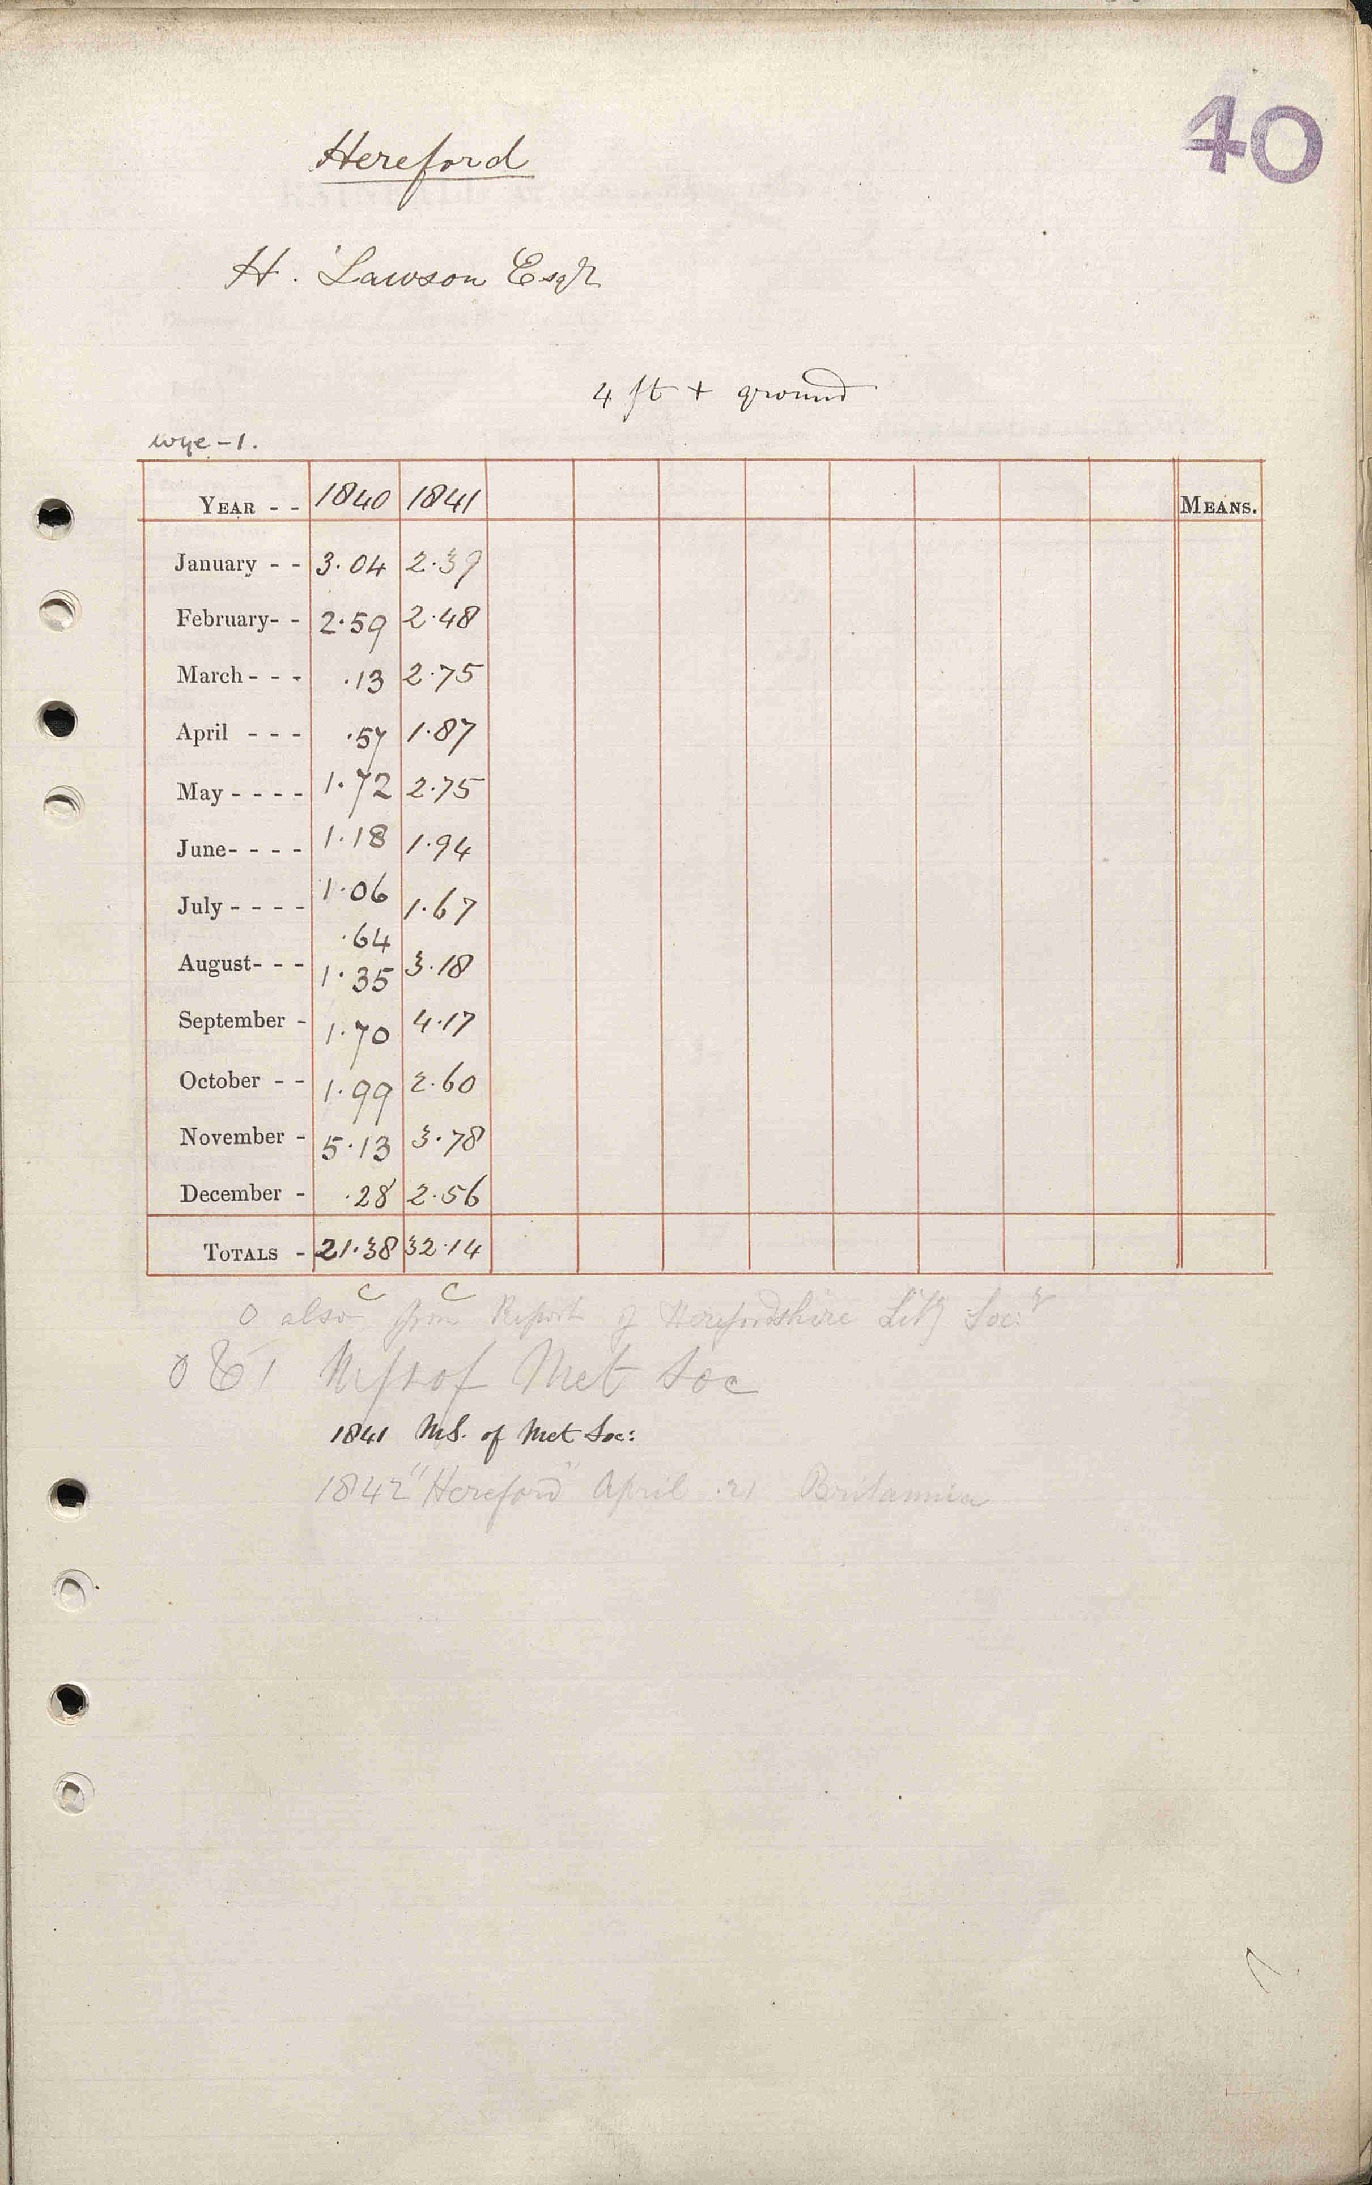 40
Hereford
H. Lawson Esqr
4 ft + ground
wye - 1.
YEAR - - 1840 1841 MEANS.
January - - 3.04 2.39
February - - 2.59 2.48
March - - - .13 2.75
April - - - .57 1.87
May - - - - 1.72 2.75
June - - - - 1.18 1.94
July - - - - 1.06 1.67
.64
August - - - 1.35 3.18
September - 1.70 4.17
October - - 1.99 2.60
November - 5.13 3.78
December - .28 2.56
TOTALS - 21.38 32.14
c c
0 also from Report of Herefordshire Lity Socy
of Met Soc
1841 MS. of Met Soc:
1842 "Hereford" April .21 Britannia